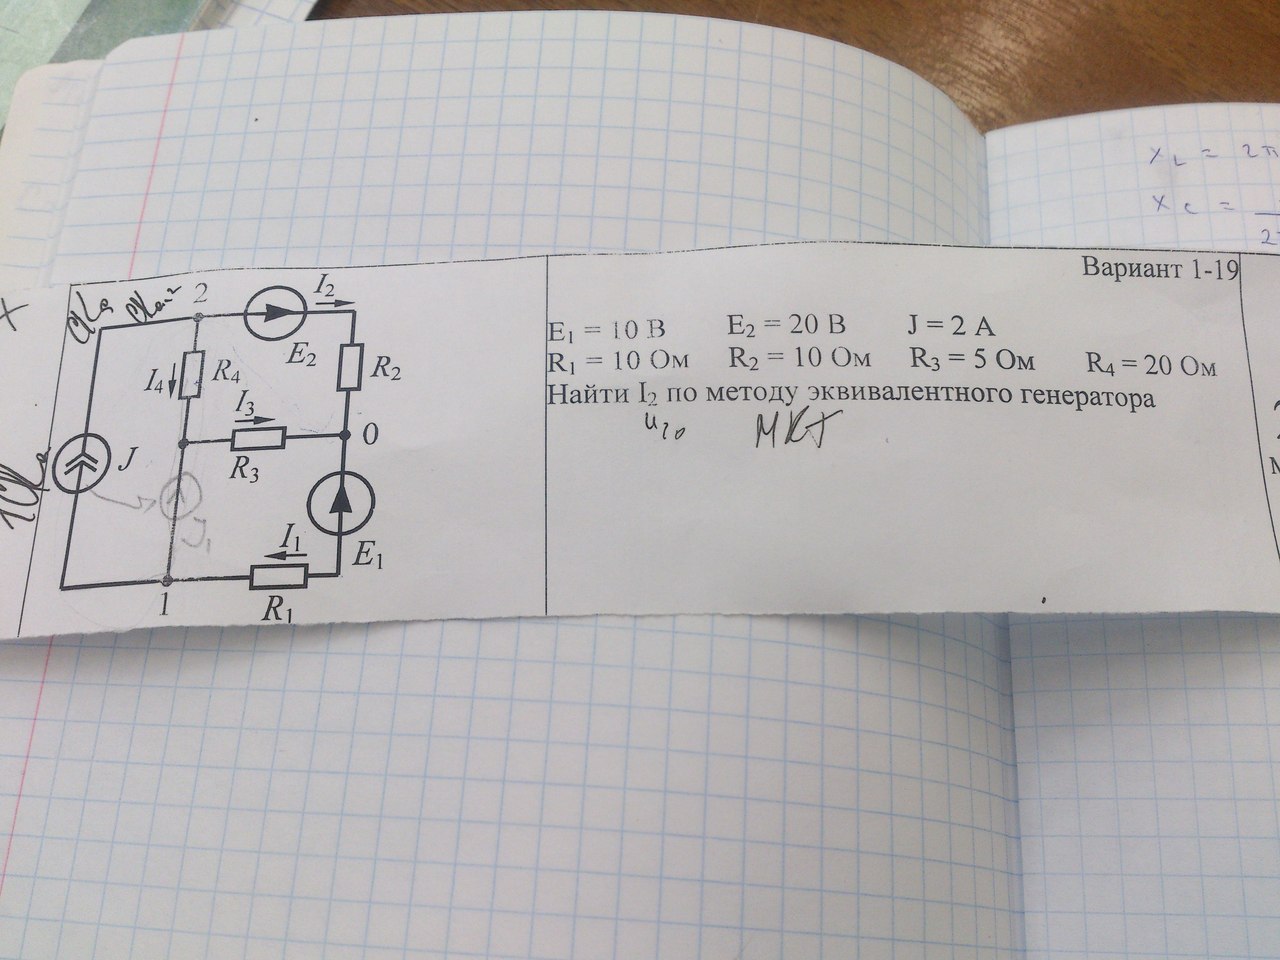 Вариант 1-19
E₁ = 10 В E₂ = 20 В J = 2 А
R₁ = 10 Ом R₂ = 10 Ом R₃ = 5 Ом R₄ = 20 Ом
Найти I₂ по методу эквивалентного генератора
МКТ
2
I₂
E₂
R₂
I₄
R₄
I₃
R₃
0
J
J₁
I₁
E₁
1
R₁
X_L = 2π
X_C =